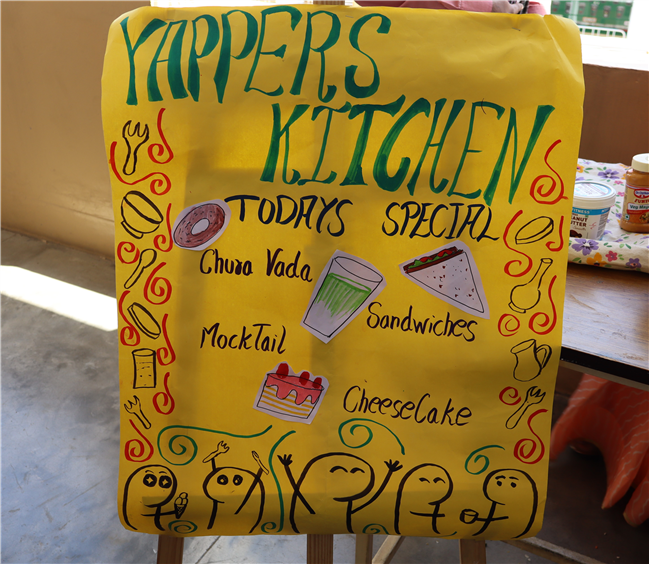 YAPPERS
KITCHEN
TODAYS SPECIAL
Chura Vada
Sandwiches
MockTail
CheeseCake